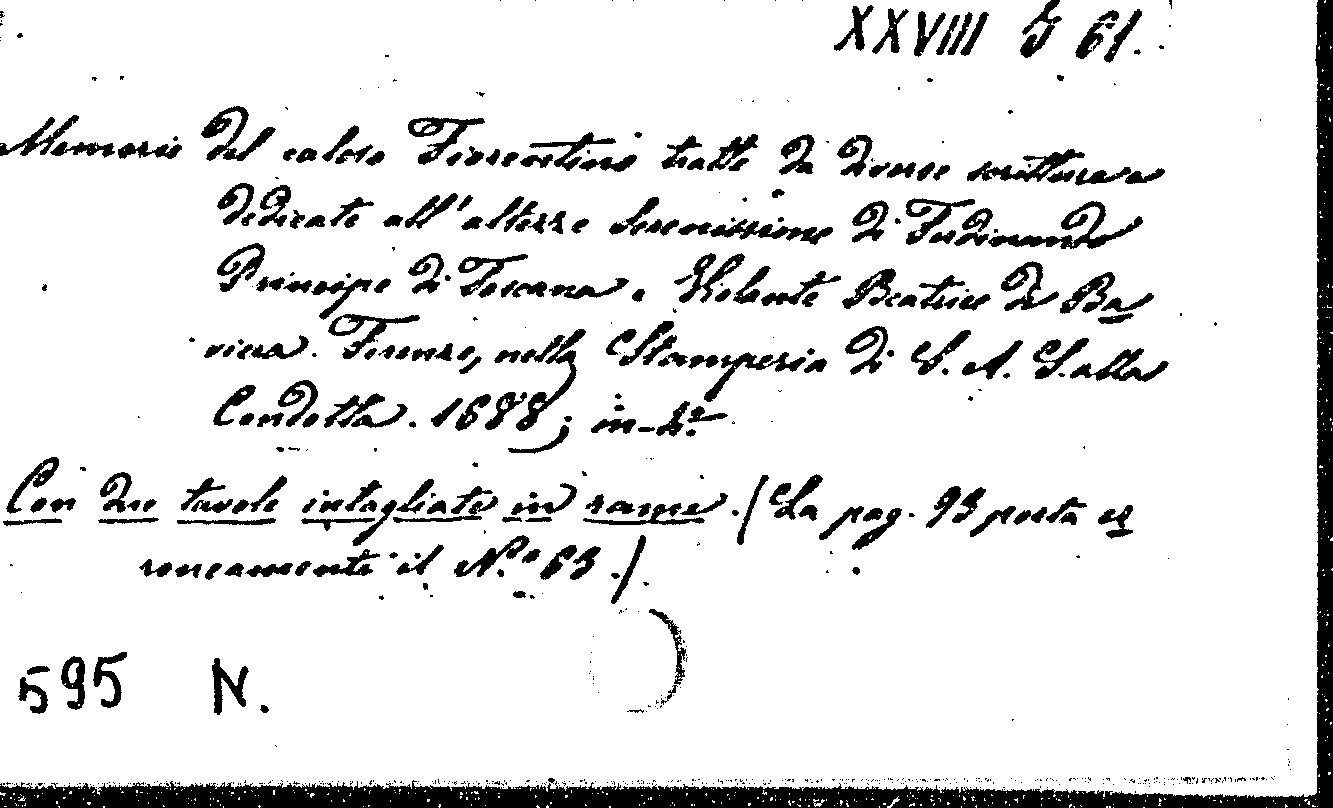 XXVIII G 61.
Memorie del calcio Fiorentino tratte da diverse scritture e
dedicate all'altezze Serenissime di Ferdinando
Principe di Toscana e Violante Beatrice di Ba
viera. Firenze, nella Stamperia di S. A. S. alla
Condotta. 1688; in-4º.
Con due tavole intagliate in rame. / La pag. 93 porta er
roneamente il N.º 63. /
595 N.